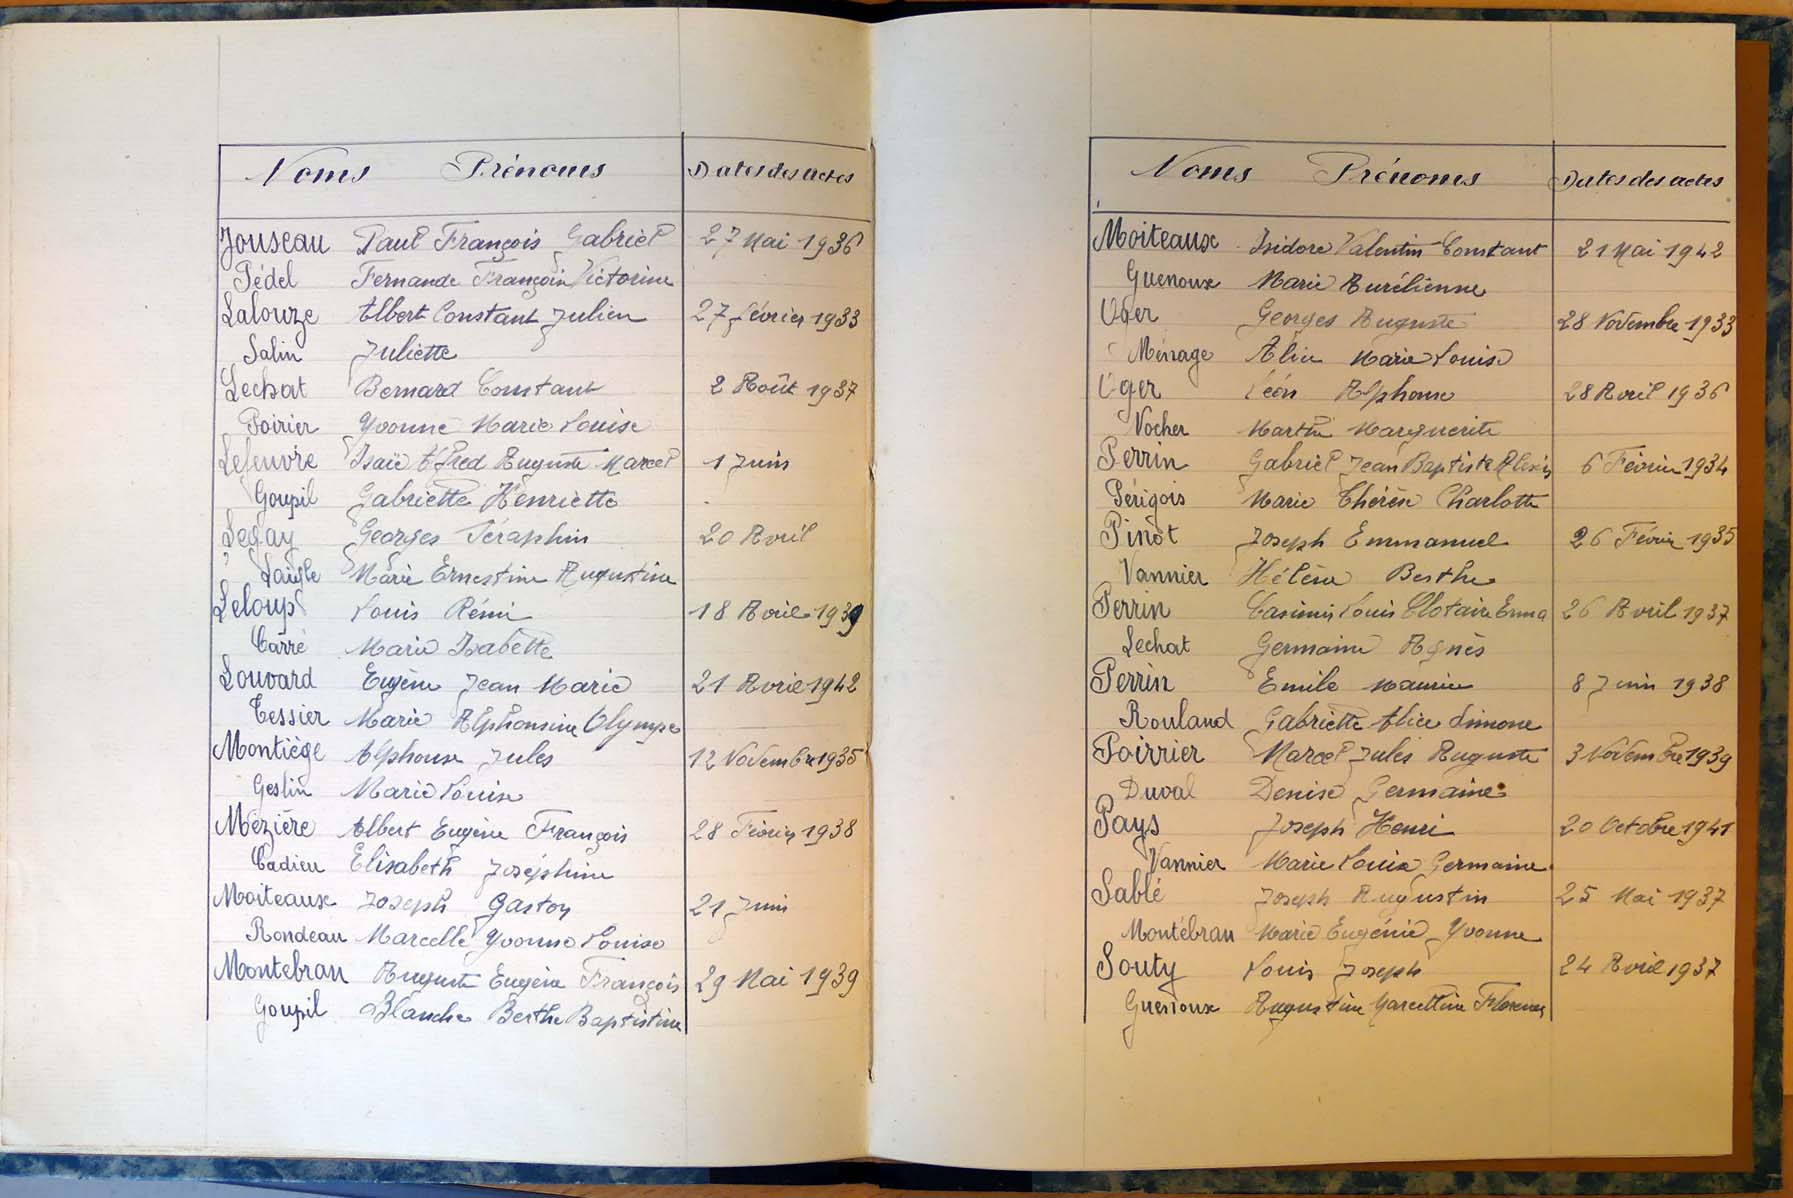 Noms Prénoms Dates des actes
Jouseau Paul François Gabriel 27 Mai 1936
Pédel Fernande François Victorine
Lalouze Albert Constant Julien 27 février 1933
Salin Juliette
Lechat Bernard Constant 2 Août 1937
Poirier Yvonne Marie Louise
Lefeuvre Isaïe Alfred Auguste Marcel 1 Juin
Goupil Gabrielle Henriette
Legay Georges Séraphin 20 Avril
Laigle Marie Ernestine Augustine
Leloup Louis Rémi 18 Avril 1939
Carré Marie Isabelle
Louvard Eugène Jean Marie 21 Avril 1942
Tessier Marie Alphonsine Olympe
Montiège Alphonse Jules 12 Novembre 1935
Geslin Marie Louise
Mézière Albert Eugène François 28 Février 1938
Cadieu Elisabeth Joséphine
Moiteaux Joseph Gaston 21 Juin
Rondeau Marcelle Yvonne Louise
Montebran Auguste Eugène François 29 Mai 1939
Goupil Blanche Berthe Baptistine
Noms Prénoms Dates des actes
Moiteaux Isidore Valentin Constant 21 Mai 1942
Guenoux Marie Aurélienne
Oger Georges Auguste 28 Novembre 1933
Ménage Alice Marie Louise
Oger Léon Alphonse 28 Avril 1936
Vocher Marthe Marguerite
Perrin Gabriel Jean Baptiste Alexis 6 Février 1934
Périgois Marie Thérèse Charlotte
Pinot Joseph Emmanuel 26 Février 1935
Vannier Hélène Berthe
Perrin Casimir Louis Clotaire 26 Avril 1937
Lechat Germaine Agnès
Perrin Emile Maurice 8 Juin 1938
Rouland Gabrielle Alice Simone
Poirrier Marcel Jules Auguste 3 Novembre 1939
Duval Denise Germaine
Pays Joseph Henri 20 Octobre 1941
Vannier Marie Louise Germaine
Sablé Joseph Augustin 25 Mai 1937
Montébran Marie Eugénie Yvonne
Souty Louis Joseph 24 Avril 1937
Augustine Marcelline